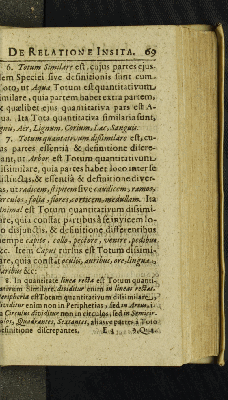 DE RELATIONE INSITA. 69
6. Totum Similare est, cujus partes ejus-
dem Speciei sive definitionis sunt cum
Toto, ut Aqua Totum est quantitativum
similare, quia partem habet extra partem,
& quælibet ejus quantitativa pars est A-
qua. Ita Tota quantitativa similaria sunt,
Ignis, Aer, Lignum, Corium, Lac, Sanguis.
7. Totum quantitativum dissimilare est, cu-
jus partes essentiâ & definitione discre-
pant, ut Arbor est Totum quantitativum
dissimilare, quia partes habet loco inter se
distinctas, & essentiâ & definitione diver-
sas, ut radicem, stipitem sive caudicem, ramos,
surculos, folia, flores, corticem, medullam. Ita
Animal est Totum quantitativum dissimi-
lare, quia constat partibus se invicem lo-
co disjunctis, & definitione differentibus
nempe capite, collo, pectore, ventre, pedibus
&c. Item Caput rursus est Totum dissimi-
lare, quia constat oculis, auribus, ore, lingua,
naribus &c:
8. In quantitate linea recta est Totum quanti-
tativum Similare, dividitur enim in lineas rectas.
Peripheria est Totum quantitativum dissimilare,
dividitur enim non in Peripherias, sed in Arcus, i-
ta Circulus dividitur non in circulos, sed in Semicir-
culos, Quadrantes, Sextantes, aliasve partes à Toto
definitione discrepantes. E 4